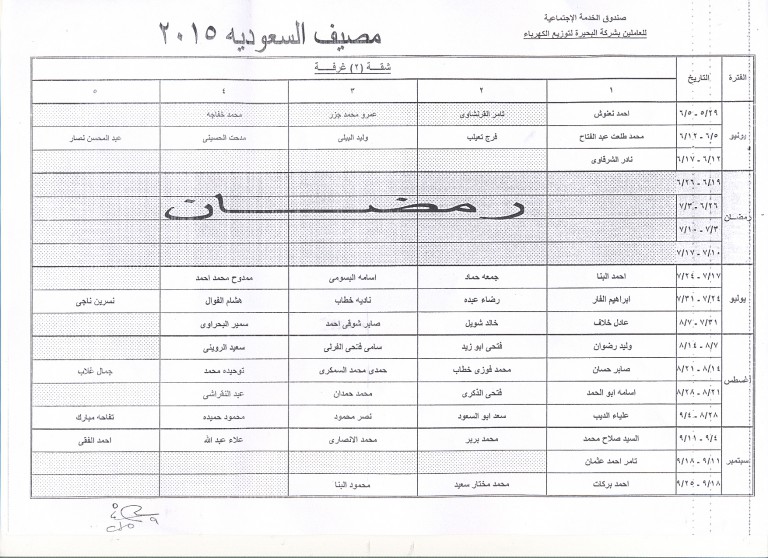 صندوق الخدمة الإجتماعية
للعاملين بشركة البحيرة لتوزيع الكهرباء
مصيف السعوديه ٢٠١٥
الفترة التاريخ شقــة (٢) غرفــة
١ ٢ ٣ ٤ ٥
يونيو
٥/٢٩ - ٦/٥ احمد نعنوش تامر القرنشاوى عمرو محمد جزر محمد خفاجه
٦/٥ - ٦/١٢ محمد طلعت عبد الفتاح فرج تعيلب وليد البيلى مدحت الحسينى عبد المحسن نصار
٦/١٢ - ٦/١٧ نادر الشرقاوى
رمضــان
٦/١٩ - ٦/٢٦
٦/٢٦ - ٧/٣
٧/٣ - ٧/١٠
٧/١٠ - ٧/١٧
رمضــــان
يوليو
٧/١٧ - ٧/٢٤ احمد البنا جمعه حماد اسامه البسومى ممدوح محمد احمد
٧/٢٤ - ٧/٣١ ابراهيم الفار رضاء عبده ناديه خطاب هشام الفوال نسرين ناجى
٧/٣١ - ٨/٧ عادل خلاف خالد شويل صابر شوقى احمد سمير البحراوى
أغسطس
٨/٧ - ٨/١٤ وليد رضوان فتحى ابو زيد سامى فتحى القرنى سعيد الروينى
٨/١٤ - ٨/٢١ صابر حسان محمد فوزى خطاب حمدى محمد السمكرى توحيده محمد جمال غلاب
٨/٢١ - ٨/٢٨ اسامه ابو الحمد فتحى الذكرى محمد حمدان عبد النقراشى
٨/٢٨ - ٩/٤ علياء الديب سعد ابو السعود نصر محمود محمود حميده تفاحه مبارك
سبتمبر
٩/٤ - ٩/١١ السيد صلاح محمد محمد برير محمد الانصارى علاء عبد الله احمد الفقى
٩/١١ - ٩/١٨ تامر احمد عثمان
٩/١٨ - ٩/٢٥ احمد بركات محمد مختار سعيد محمود البنا